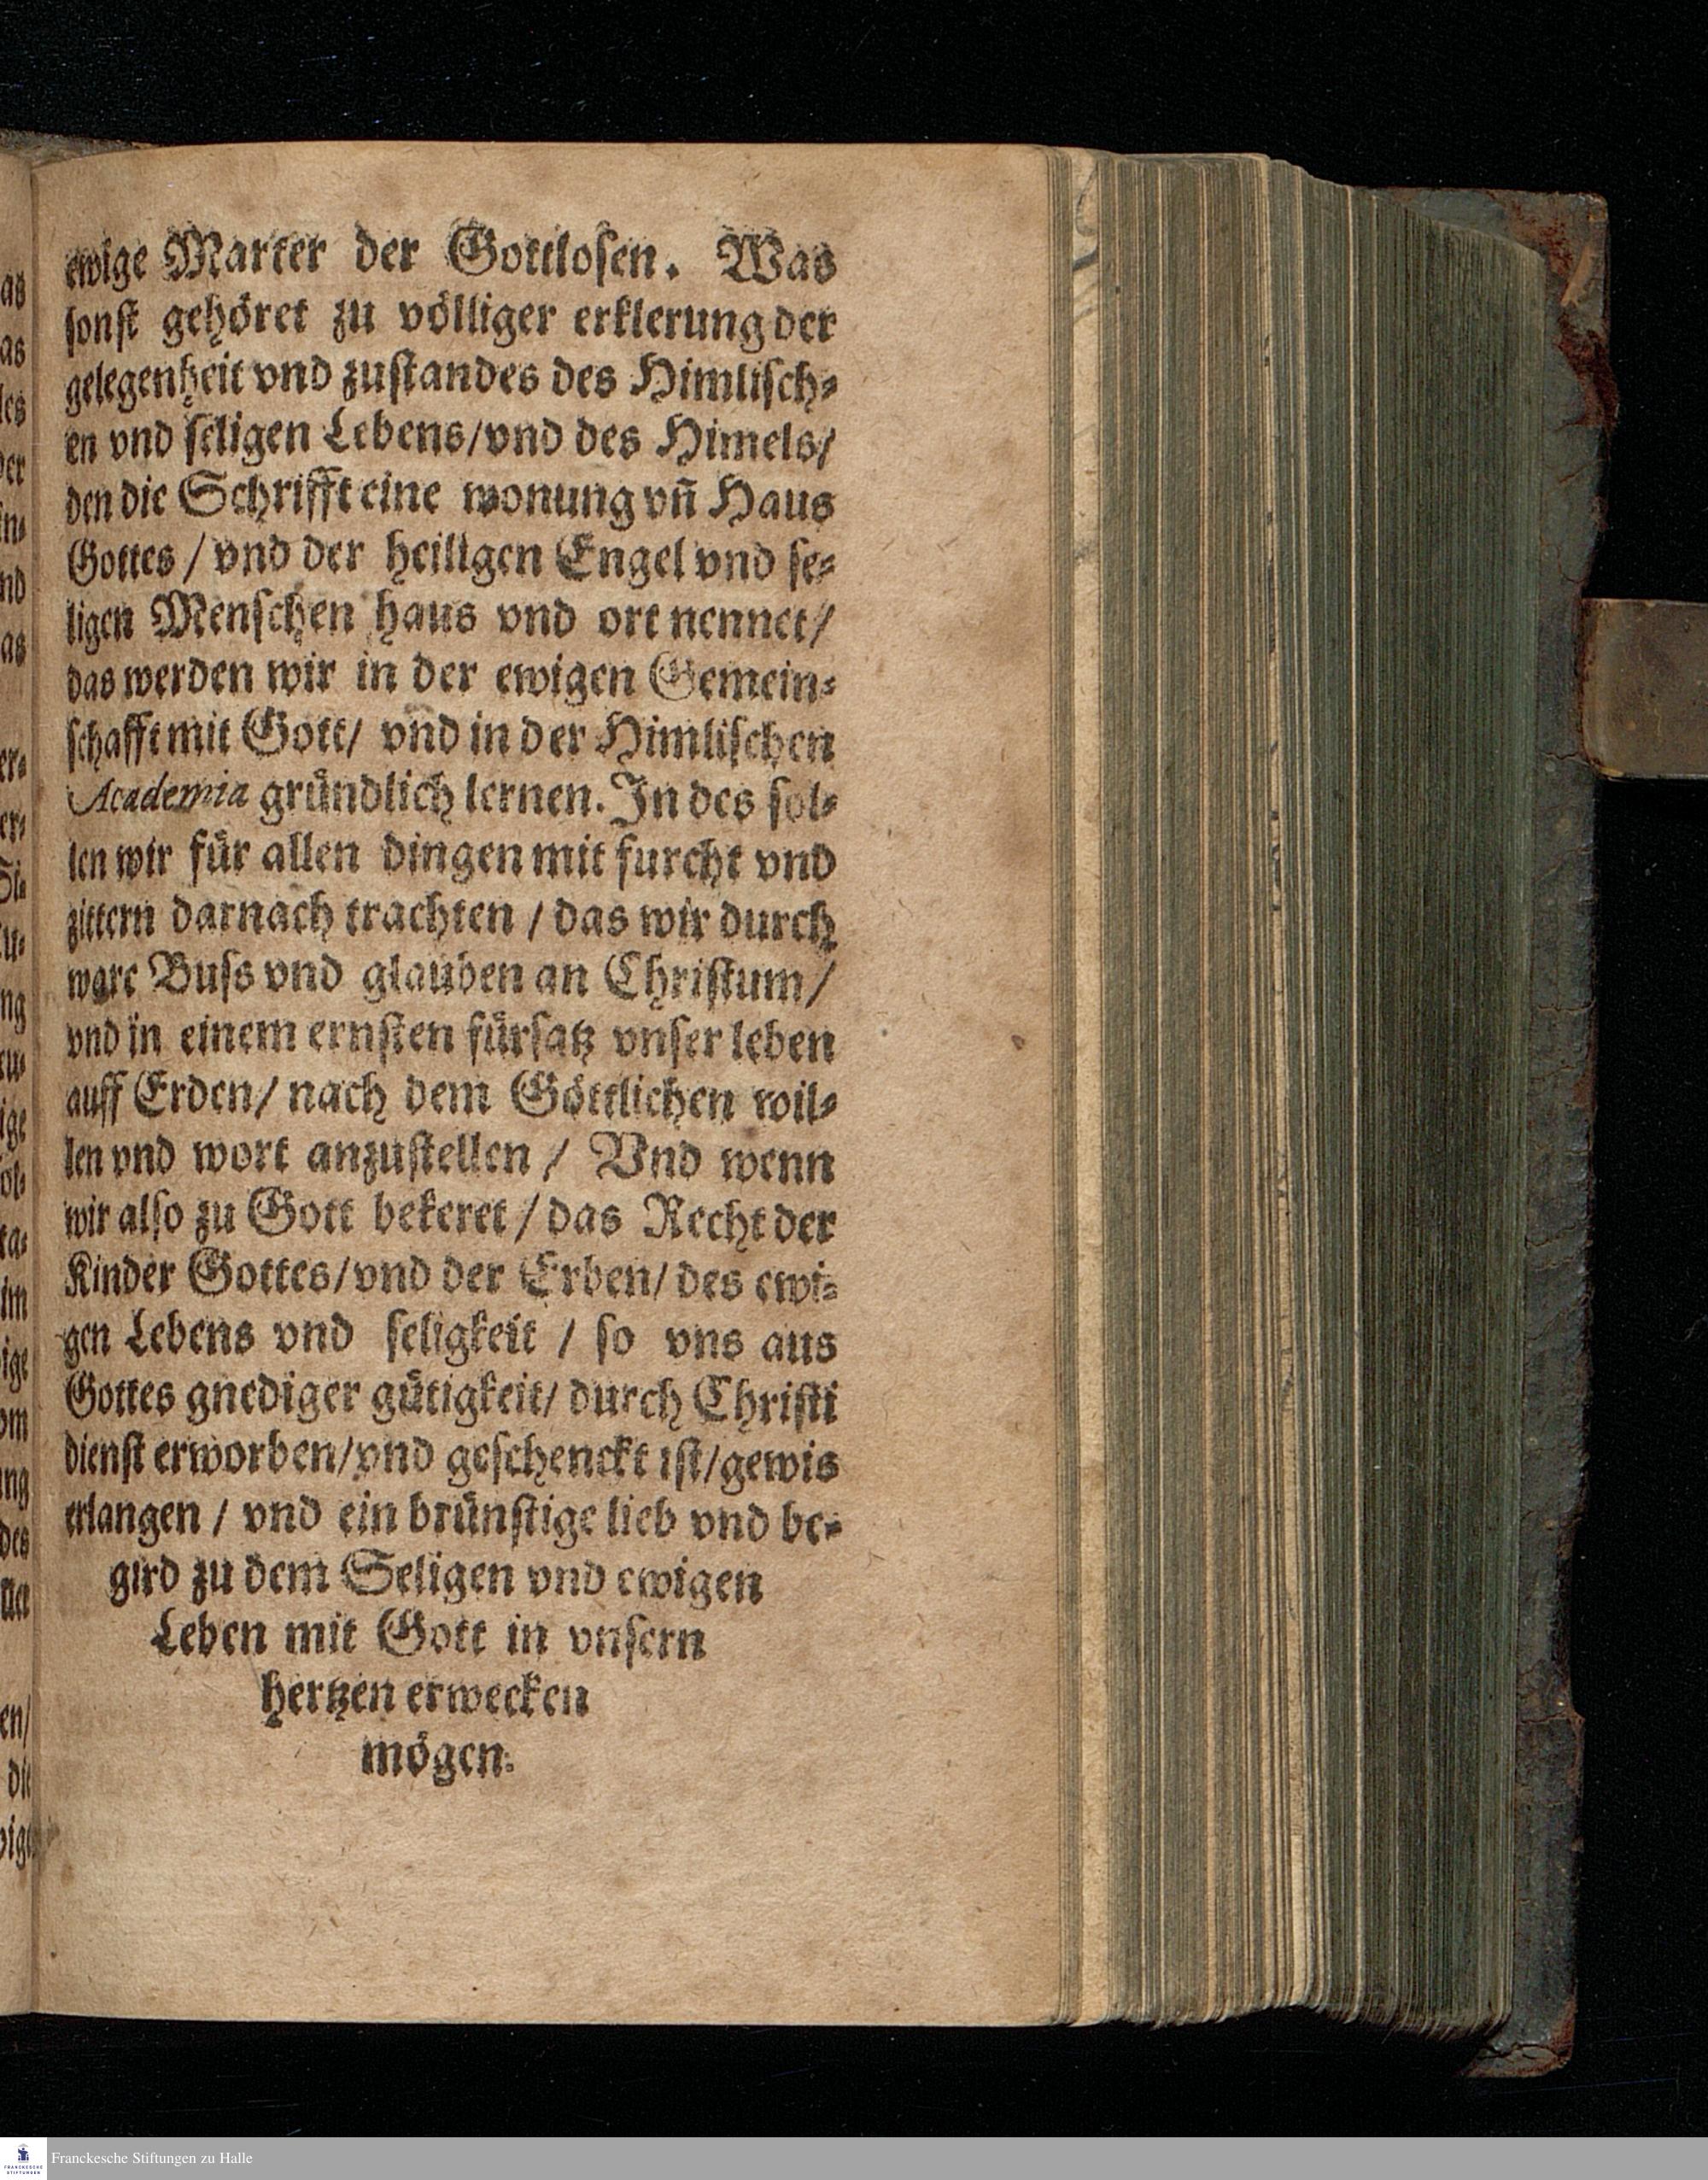 ewige Marter der Gottlosen. Was
sonst gehöret zu völliger erklerung der
gelegenheit vnd zustandes des Himlisch-
en vnd seligen Lebens/vnd des Himels/
den die Schrifft eine wonung vñ Haus
Gottes / vnd der heiligen Engel vnd se-
ligen Menschen haus vnd ort nennet/
das werden wir in der ewigen Gemein-
schafft mit Gott/ vnd in der Himlischen
Academia gründlich lernen. In des sol-
len wir für allen dingen mit furcht vnd
zittern darnach trachten / das wir durch
ware Buss vnd glauben an Christum/
vnd in einem ernsten fürsatz vnser leben
auff Erden/ nach dem Göttlichen wil-
len vnd wort anzustellen / Vnd wenn
wir also zu Gott bekeret / das Recht der
Kinder Gottes/vnd der Erben/ des ewi-
gen Lebens vnd seligkeit / so vns aus
Gottes gnediger gütigkeit/ durch Christi
dienst erworben/vnd geschenckt ist/gewis
erlangen / vnd ein brünstige lieb vnd be-
gird zu dem Seligen vnd ewigen
Leben mit Gott in vnsern
hertzen erwecken
mögen.
Franckesche Stiftungen zu Halle
FRANCKESCHE
STIFTUNGEN